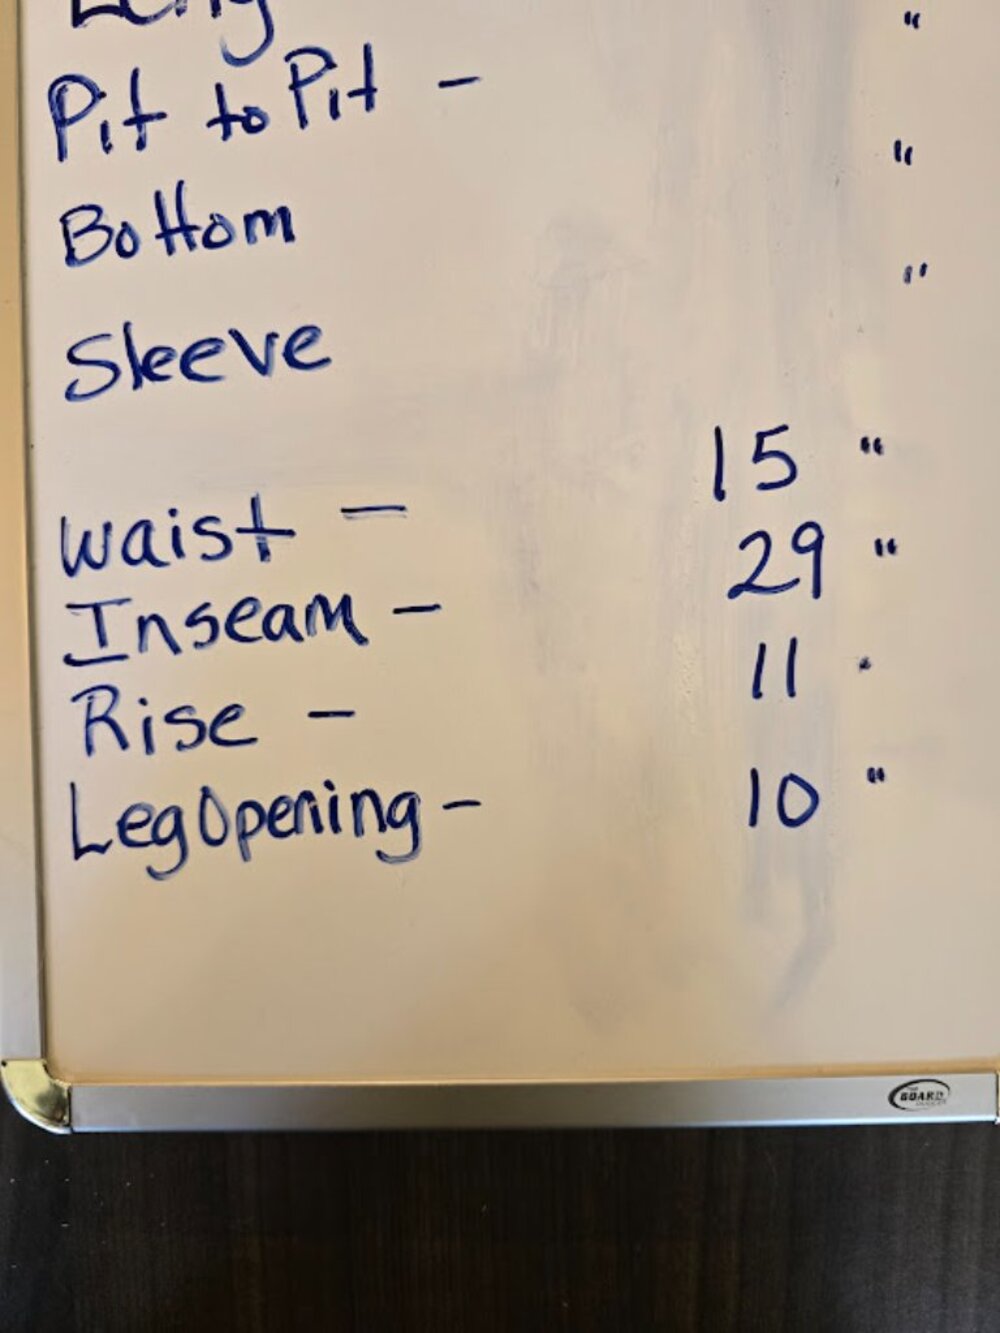 "
Pit to Pit - "
Bottom "
Sleeve
Waist - 15 "
Inseam - 29 "
Rise - 11 "
Leg Opening - 10 "